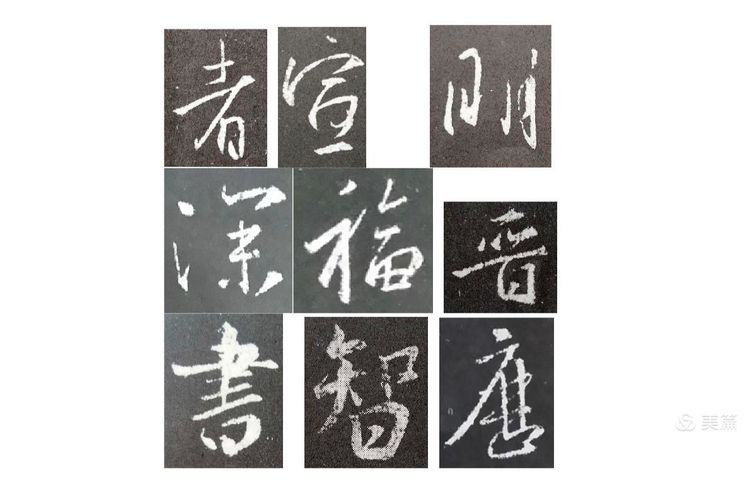 者宣明
深福晉
書智應
美篇